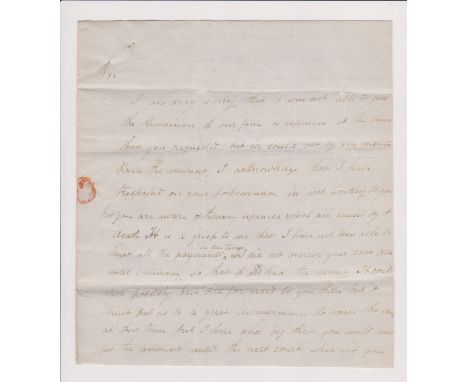 Sir
I am sorry to say that I was not able to pay
the Remainder of our fine & expences at the time
that you requested but we could not by any means
Raise the amount I acknowledge that I have
trespassed on your forbearance in not writing to you
but you are aware of the many expences which are caused by a
death It is a grief to me that I have not been able to
meet all the payments in due time, did not receive your
until so that if I had the money I could
not possibly have been forwarded to you then but it
must put us to a great inconvenience to raise the
at this time but I hope and beg that you would wait
for the amount until the next court when sir you